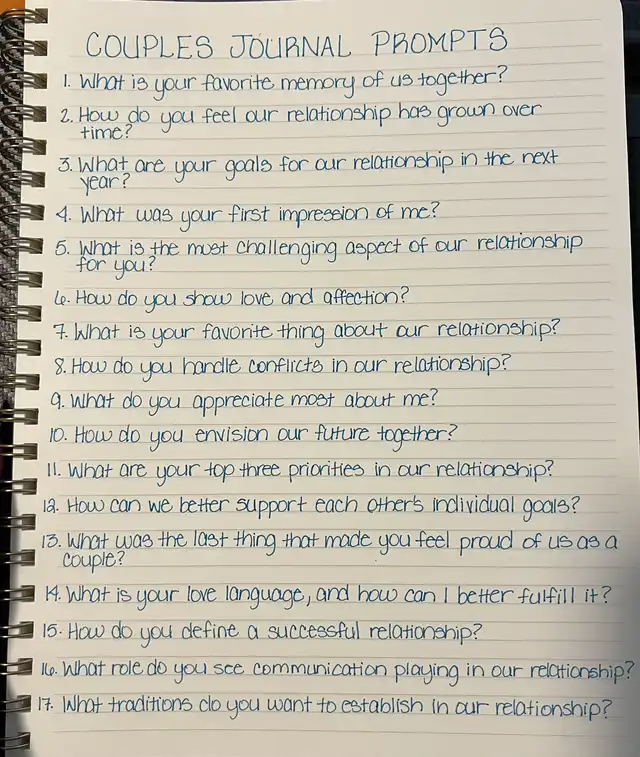 COUPLES JOURNAL PROMPTS
1. What is your favorite memory of us together?
2. How do you feel our relationship has grown over
time?
3. What are your goals for our relationship in the next
year?
4. What was your first impression of me?
5. What is the most challenging aspect of our relationship
for you?
6. How do you show love and affection?
7. What is your favorite thing about our relationship?
8. How do you handle conflicts in our relationship?
9. What do you appreciate most about me?
10. How do you envision our future together?
11. What are your top three priorities in our relationship?
12. How can we better support each other's individual goals?
13. What was the last thing that made you feel proud of us as a
couple?
14. What is your love language, and how can I better fulfill it?
15. How do you define a successful relationship?
16. What role do you see communication playing in our relationship?
17. What traditions do you want to establish in our relationship?